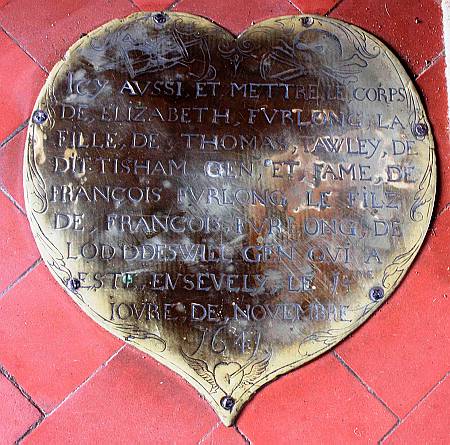 ICY AVSSI ET METTRE LE CORPS
DE ELIZABETH FVRLONG LA
FILLE DE THOMAS TAWLEY DE
DITTISHAM GEN ET FAME DE
FRANÇOIS FVRLONG LE FILZ
DE FRANÇOIS FVRLONG DE
LODDDESWILL GEN QVI A
ESTE EVSEVELY LE
IOVRE DE NOVEMBRE
1641